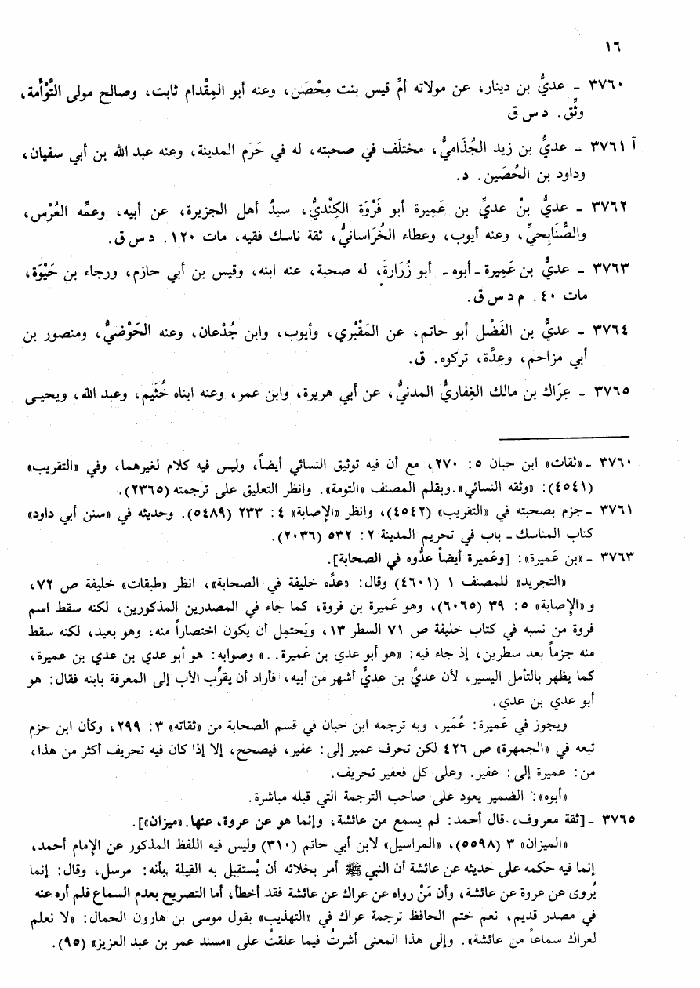 ١٦
٣٧٦٠ - عديُّ بن دينار، عن مولاته أمِّ قيس بنت مِحْصَن، وعنه أبو المِقْدام ثابت، وصالح مولى التُّوْأَمة،
وثِّق. د س ق
آ ٣٧٦١ - عديُّ بن زيد الجُذَاميُّ، مختلَف في صحبته، له في حَرَم المدينة، وعنه عبد الله بن أبي سفيان،
وداود بن الحُصَين. د.
٣٧٦٢ - عديُّ بنُ عديِّ بن عَمِيرة أبو فَرْوَة الكِنْديُّ، سيدُ أهل الجزيرة، عن أبيه، وعمِّه العُرْس،
والصُّنَابِحيِّ، وعنه أيوب، وعطاء الخُراسانيُّ، ثقة ناسك فقيه، مات ١٢٠. د س ق.
٣٧٦٣ - عديُّ بن عَمِيرة - أبوه - أبو زُرَارة، له صحبة، عنه ابنه، وقيس بن أبي حازم، ورجاء بن حَيْوَة،
مات ٤٠. م د س ق.
٣٧٦٤ - عديُّ بن الفَضْل أبو حاتم، عن المَقْبُري، وأيوب، وابن جُدْعان، وعنه الحَوْضيُّ، ومنصور بن
أبي مزاحم، وعِدَّة، تركوه. ق.
٣٧٦٥ - عِرَاك بن مالك الغِفاريُّ المدنيُّ، عن أبي هريرة، وابن عمر، وعنه ابناه خُثَيم، وعبد الله، ويحيى
٣٧٦٠ - «ثقات» ابن حبان ٥: ٢٧٠، مع أن فيه توثيق النسائي أيضاً، وليس فيه كلام لغيرهما، وفي «التقريب»
(٤٥٤١): «وثقه النسائي». وبقلم المصنف «التومة». وانظر التعليق على ترجمته (٢٣٦٥).
٣٧٦١ - جزم بصحبته في «التقريب» (٤٥٤٢)، وانظر «الإصابة» ٤: ٢٣٣ (٥٤٨٩). وحديثه في «سنن أبي داود»
كتاب المناسك - باب في تحريم المدينة ٢: ٥٣٢ (٢٠٣٦).
٣٧٦٣ - «بن عميرة»: [وعَميرة أيضاً عدُّوه في الصحابة].
«التجريد» للمصنف ١ (٤٦٠١) وقال: «عدَّه خليفة في الصحابة»، انظر «طبقات» خليفة ص ٧٢،
و«الإصابة» ٥: ٣٩ (٦٠٦٥)، وهو عَمِيرة بن فروة، كما جاء في المصدرين المذكورين، لكنه سقط اسم
فروة من نسبه في كتاب خليفة ص ٧١ السطر ١٣، ويَحتمِل أن يكون اختصاراً منه، وهو بعيد، لكنه سقط
منه جزماً بعد سطرين، إذ جاء فيه: «هو أبو عدي بن عميرة..» وصوابه: هو أبو عدي بن عدي بن عميرة،
كما يظهر بالتأمل اليسير، لأن عديَّ بن عديٍّ أشهر من أبيه، فأراد أن يقرِّب الأب إلى المعرفة بابنه فقال: هو
أبو عدي بن عدي.
ويجوز في عَميرة: عُمَير، وبه ترجمه ابن حبان في قسم الصحابة من «ثقاته» ٣: ٢٩٩، وكأن ابن حزم
تبعه في «الجمهرة» ص ٤٢٦ لكن تحرف عمير إلى: عفير، فيصحح، إلا إذا كان فيه تحريف أكثر من هذا،
من: عميرة إلى: عفير. وعلى كل فعفير تحريف.
«أبوه»: الضمير يعود على صاحب الترجمة التي قبله مباشرة.
٣٧٦٥ - [ثقة معروف، قال أحمد: لم يسمع من عائشة، وإنما هو عن عروة، عنها. «ميزان»].
«الميزان» ٣ (٥٥٩٨)، «المراسيل» لابن أبي حاتم (٣١٠) وليس فيه اللفظ المذكور عن الإمام أحمد،
إنما فيه حكمه على حديثه عن عائشة أن النبي ﷺ أمر بخلائه أن يُستقبل به القبلة بأنه: مرسل، وقال: إنما
يُروى عن عروة عن عائشة، وأن مَنْ رواه عن عراك عن عائشة فقد أخطأ، أما التصريح بعدم السماع فلم أره عنه
في مصدر قديم، نعم ختم الحافظ ترجمة عراك في «التهذيب» بقول موسى بن هارون الحمال: «لا نعلم
لعراك سماعاً من عائشة». وإلى هذا المعنى أشرتُ فيما علقتُ على «مسند عمر بن عبد العزيز» (٩٥).